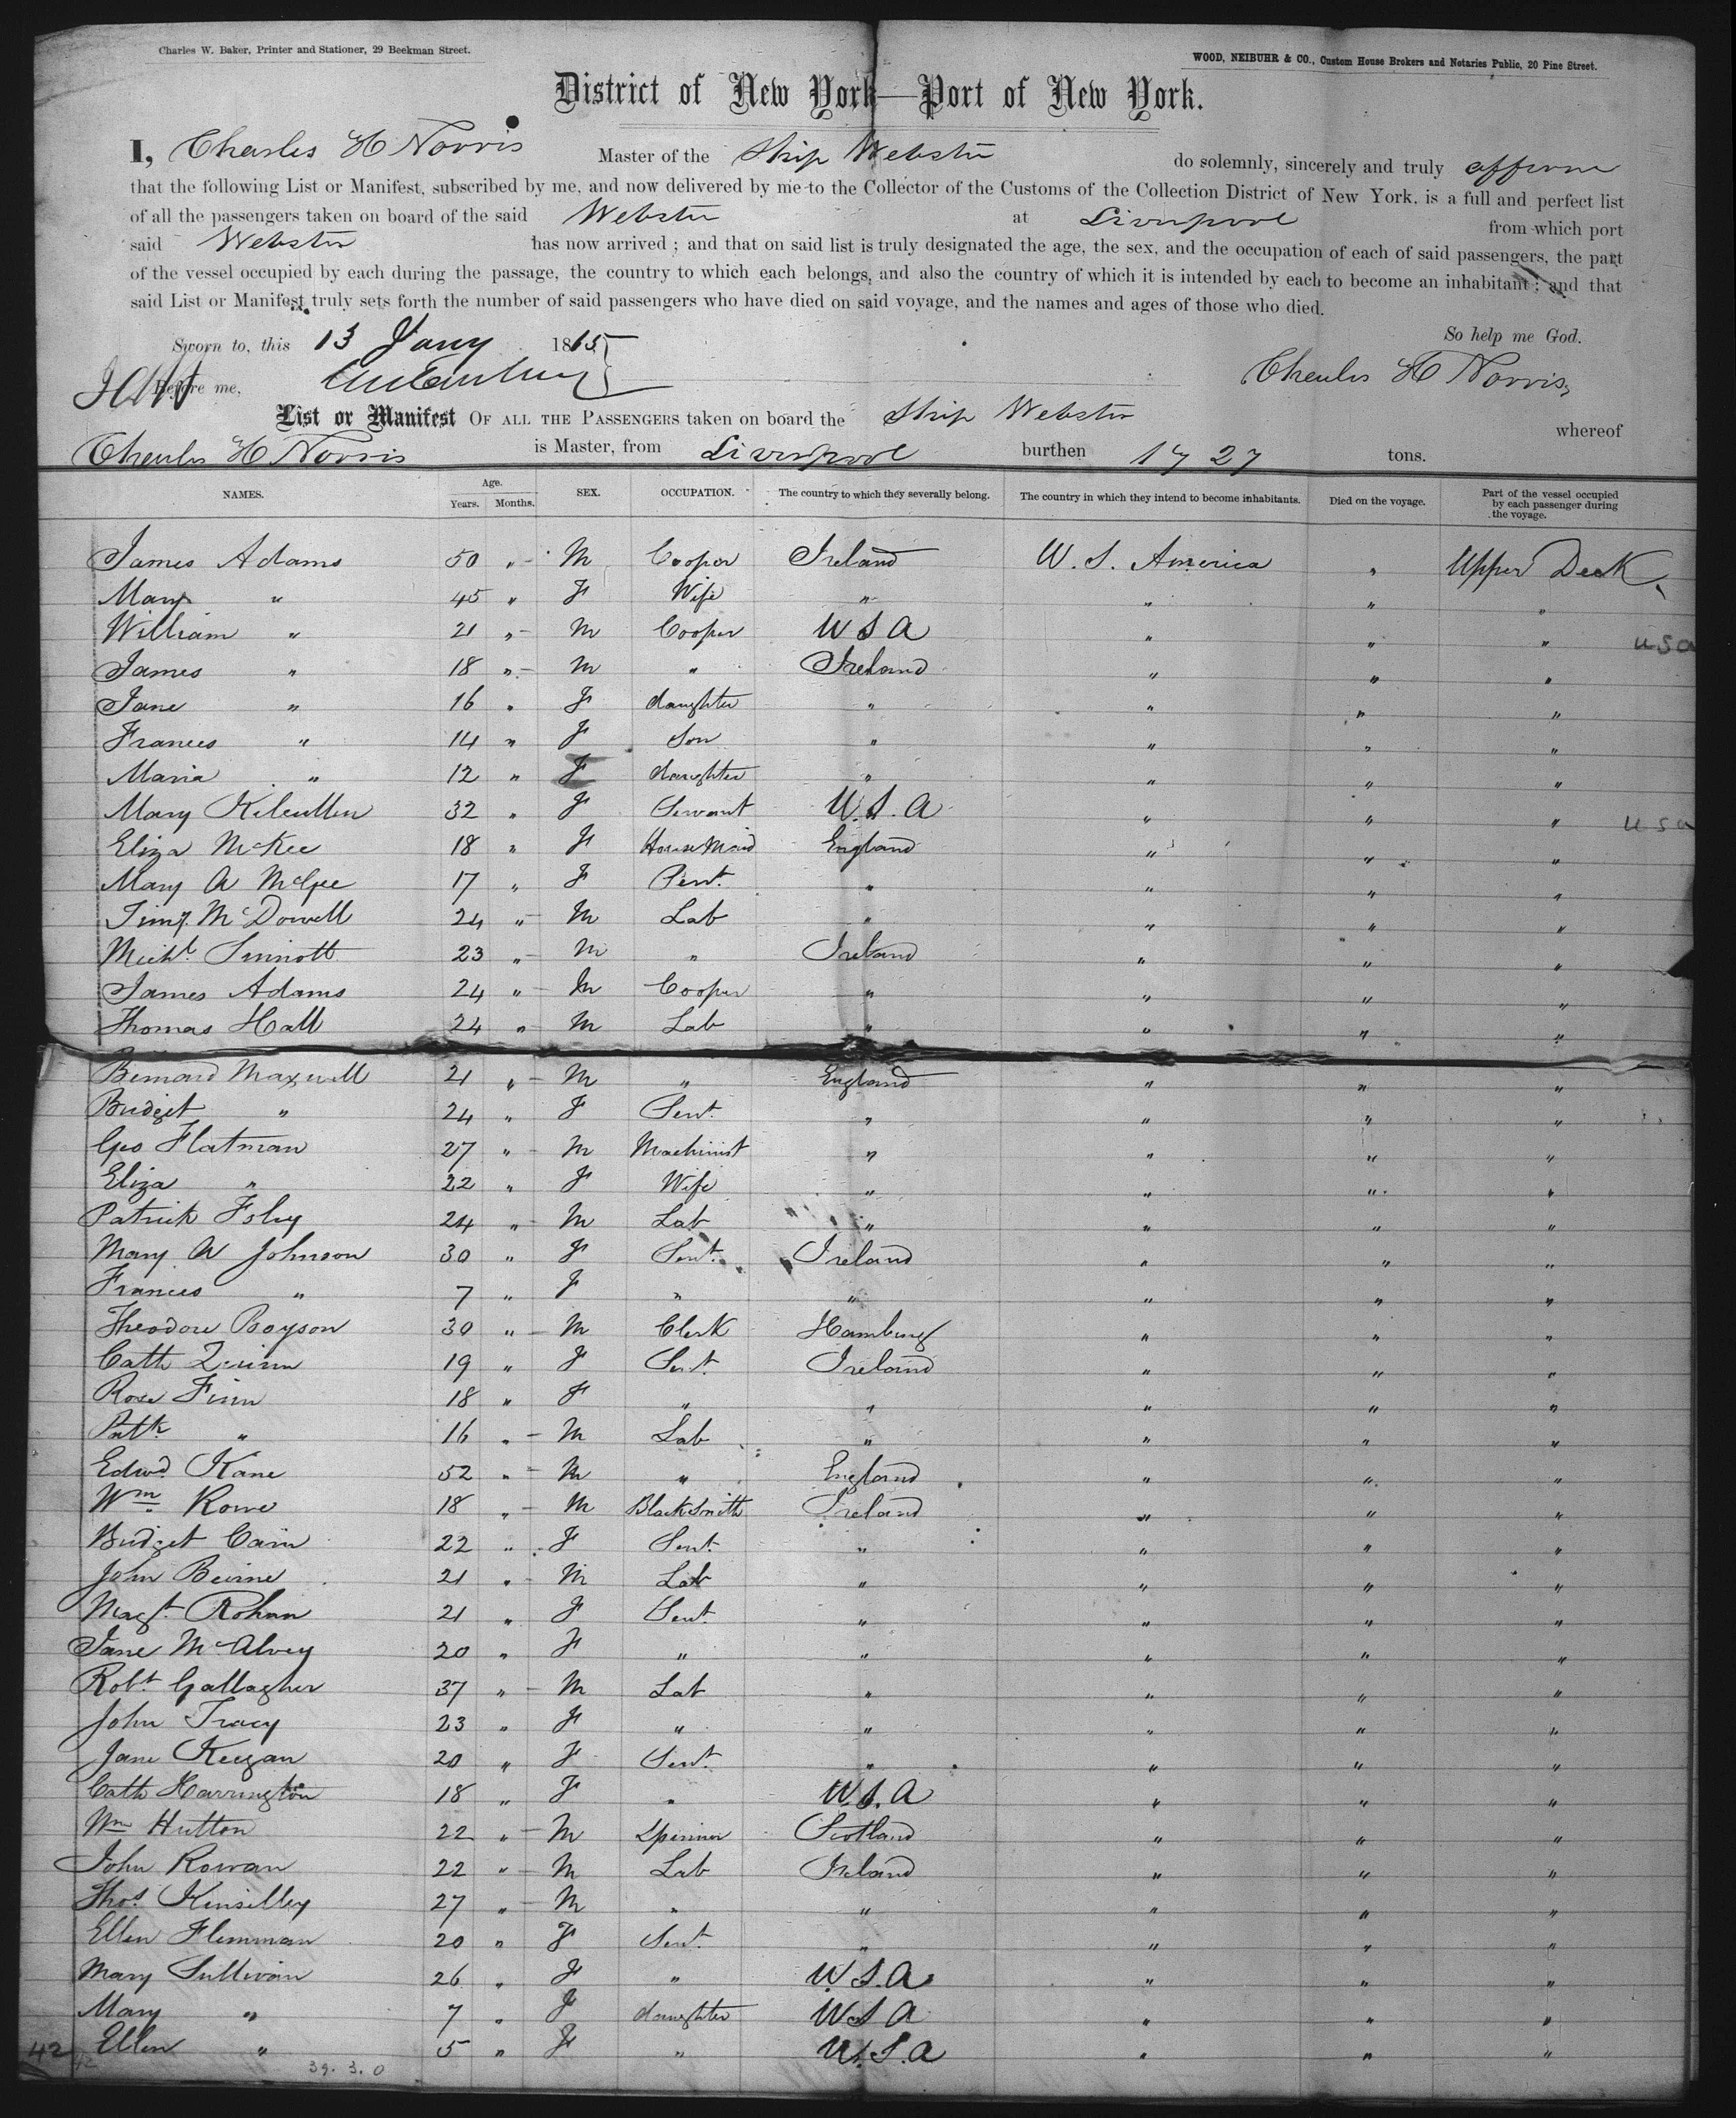 Charles W. Baker, Printer and Stationer, 29 Beekman Street.
WOOD, NEIBUHR & CO., Custom House Brokers and Notaries Public, 20 Pine Street.
District of New York—Port of New York.
I, Charles H Norris Master of the Ship Webster do solemnly, sincerely and truly affirm
that the following List or Manifest, subscribed by me, and now delivered by me to the Collector of the Customs of the Collection District of New York, is a full and perfect list
of all the passengers taken on board of the said Webster at Liverpool from which port
said Webster has now arrived; and that on said list is truly designated the age, the sex, and the occupation of each of said passengers, the part
of the vessel occupied by each during the passage, the country to which each belongs, and also the country of which it is intended by each to become an inhabitant; and that
said List or Manifest truly sets forth the number of said passengers who have died on said voyage, and the names and ages of those who died.
So help me God.
Sworn to, this 13 Jany 1865
Before me, Charles H Norris
List or Manifest OF ALL THE PASSENGERS taken on board the Ship Webster whereof
Charles H Norris is Master, from Liverpool burthen 1727 tons.
NAMES. Age. Years. Months. SEX. OCCUPATION. The country to which they severally belong. The country in which they intend to become inhabitants. Died on the voyage. Part of the vessel occupied by each passenger during the voyage.
James Adams 50 " M Cooper Ireland U. S. America " Upper Deck
Mary " 45 " F Wife " " " "
William " 21 " M Cooper U S A " " " USA
James " 18 " M " Ireland " " "
Jane " 16 " F daughter " " " "
Frances " 14 " F Son " " " "
Maria " 12 " F daughter " " " "
Mary Kilcullen 32 " F Servant U. S. A " " " USA
Eliza McKee 18 " F House Maid England " " "
Mary A McGee 17 " F " " " "
Timy. McDowell 24 " M Lab " " " "
Michl. Sinnott 23 " M " Ireland " " "
James Adams 24 " M Cooper " " " "
Thomas Hall 24 " M Lab " " " "
Bernard Maxwell 21 " M " England " " "
Bridget " 24 " F Sert. " " " "
Geo Flatman 27 " M Machinist " " " "
Eliza " 22 " F Wife " " " "
Patrick Foley 24 " M Lab " " " "
Mary A Johnson 30 " F Sert. Ireland " " "
Frances " 7 " F " " " " "
Theodore Boyson 30 " M Clerk Hamburg " " "
Cath Quinn 19 " F Sert. Ireland " " "
Rose Finn 18 " F " " " " "
Patk. " 16 " M Lab " " " "
Edwd. Kane 52 " M " England " " "
Wm Rowe 18 " M Blacksmith Ireland " " "
Bridget Cain 22 " F Sert. " " " "
John Beirne 21 " M Lab " " " "
Magt. Rohan 21 " F Sert. " " " "
Jane McAlvey 20 " F " " " " "
Robt. Gallagher 37 " M Lab " " " "
John Tracy 23 " F " " " " "
Jane Keegan 20 " F Sert. " " " "
Cath Harrington 18 " F " U. S. A " " "
Wm Hutton 22 " M Spinner Scotland " " "
John Rowan 22 " M Lab Ireland " " "
Thos. Kinsilley 27 " M " " " " "
Ellen Flemman 20 " F Sert. " " " "
Mary Sullivan 26 " F " U. S. A " " "
Mary " 7 " F daughter U S A " " "
42 Ellen " 5 " F " U. S. A " " "
42 39. 3. 0